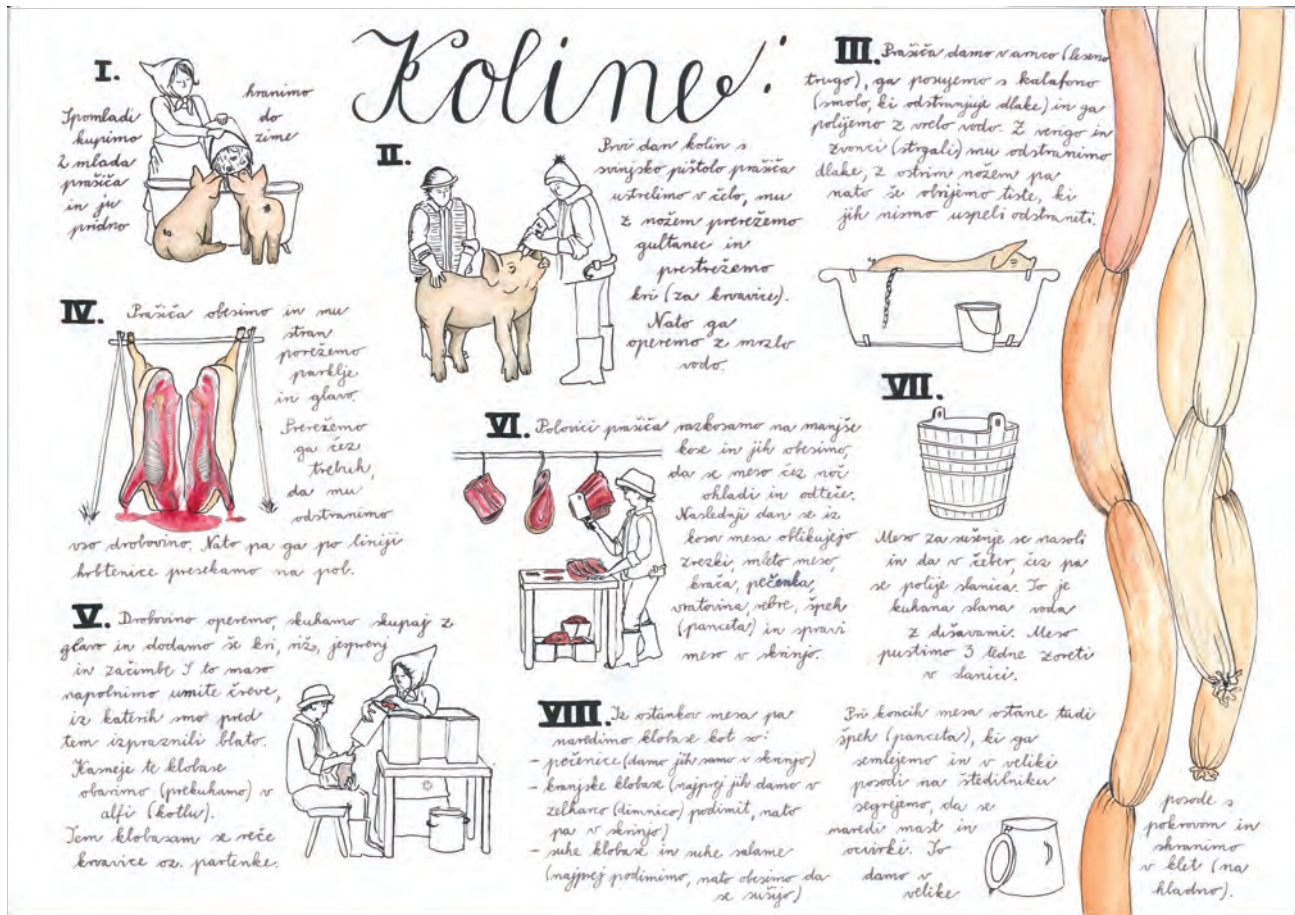 Koline:
I.
Spomladi
kupimo
2 mlada
prašiča
in ju
pridno
hranimo
do
zime
II.
Prvi dan kolin s
svinjsko pištolo prašiča
ustrelimo v čelo, mu
z nožem prerežemo
gultanec in
prestrežemo
kri (za krvavice).
Nato ga
operemo z mrzlo
vodo.
III. Prašiča damo v amco (leseno
trugo), ga posujemo s kalafono
(smolo, ki odstranjuje dlake) in ga
polijemo z vrelo vodo. Z verigo in
zvonci (strgali) mu odstranimo
dlake, z ostrim nožem pa
nato še obrijemo tiste, ki
jih nismo uspeli odstraniti.
IV. Prašiča obesimo in mu
stran
porežemo
parklje
in glavo.
Prerežemo
ga čez
trebuh,
da mu
odstranimo
vso drobovino. Nato pa ga po liniji
hrbtenice presekamo na pol.
V. Drobovino operemo, skuhamo skupaj z
glavo in dodamo še kri, riž, ješprenj
in začimbe S to maso
napolnimo umite čreve,
iz katerih smo pred
tem izpraznili blato.
Kasneje te klobase
obarimo (prekuhamo) v
alfi (kotlu).
Tem klobasam se reče
krvavice oz. partenke.
VI. Polovici prašiča razkosamo na manjše
kose in jih obesimo,
da se meso čez noč
ohladi in odteče.
Naslednji dan se iz
kosov mesa oblikujejo
zrezki, mleto meso,
krača, pečenka,
vratovina, rebre, špeh
(panceta) in spravi
meso v skrinjo.
VII.
Meso za sušenje se nasoli
in da v čeber, čez pa
se polije slanica. To je
kuhana slana voda
z dišavami. Meso
pustimo 3 tedne zoreti
v slanici.
VIII. Iz ostankov mesa pa
naredimo klobase kot so:
- pečenice (damo jih samo v skrinjo)
- kranjske klobase (najprej jih damo v
zelharco (dimnico) podimit, nato
pa v skrinjo)
- suhe klobase in suhe salame
(najprej podimimo, nato obesimo da
se sušijo)
Pri koncih mesa ostane tudi
špeh (panceta), ki ga
semlejemo in v veliki
posodi na štedilniku
segrejemo, da se
naredi mast in
ocvirki. To
damo v
velike
posode s
pokrovom in
shranimo
v klet (na
hladno).